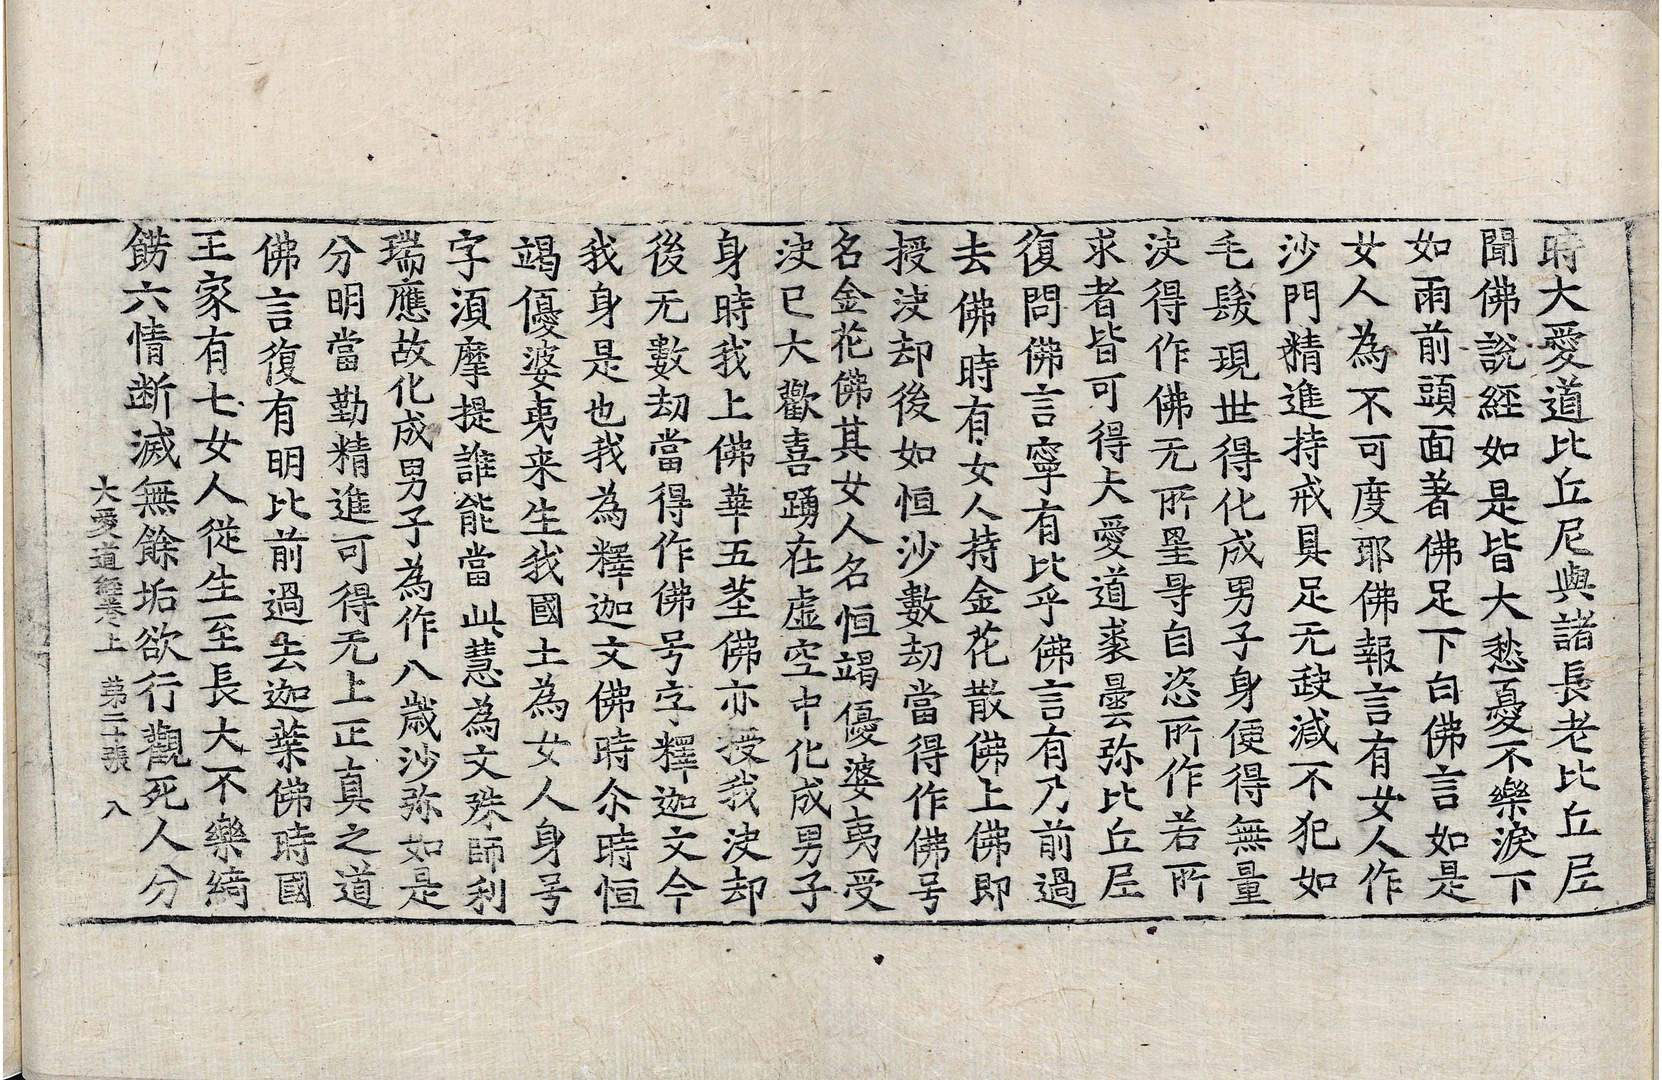 時大愛道比丘尼與諸長老比丘尼
聞佛說經如是皆大愁憂不樂淚下
如雨前頭面著佛足下白佛言如是
女人為不可度耶佛報言有女人作
沙門精進持戒具足无缺減不犯如
毛髮現世得化成男子身便得無量
決得作佛无所罣㝵自恣所作若所
求者皆可得大愛道裘曇弥比丘尼
復問佛言寧有比乎佛言有乃前過
去佛時有女人持金花散佛上佛即
授決却後如恒沙數劫當得作佛号
名金花佛其女人名恒竭優婆夷受
決已大歡喜踊在虛空中化成男子
身時我上佛華五莖佛亦授我決却
後无數劫當得作佛号字釋迦文今
我身是也我為釋迦文佛時尒時恒
竭優婆夷来生我國土為女人身号
字須摩提誰能當此慧為文殊師利
瑞應故化成男子為作八歲沙弥如是
分明當勤精進可得无上正真之道
佛言復有明比前過去迦葉佛時國
王家有七女人從生至長大不樂綺
餝六情断滅無餘垢欲行觀死人分
大愛道經卷上 第二十張 八